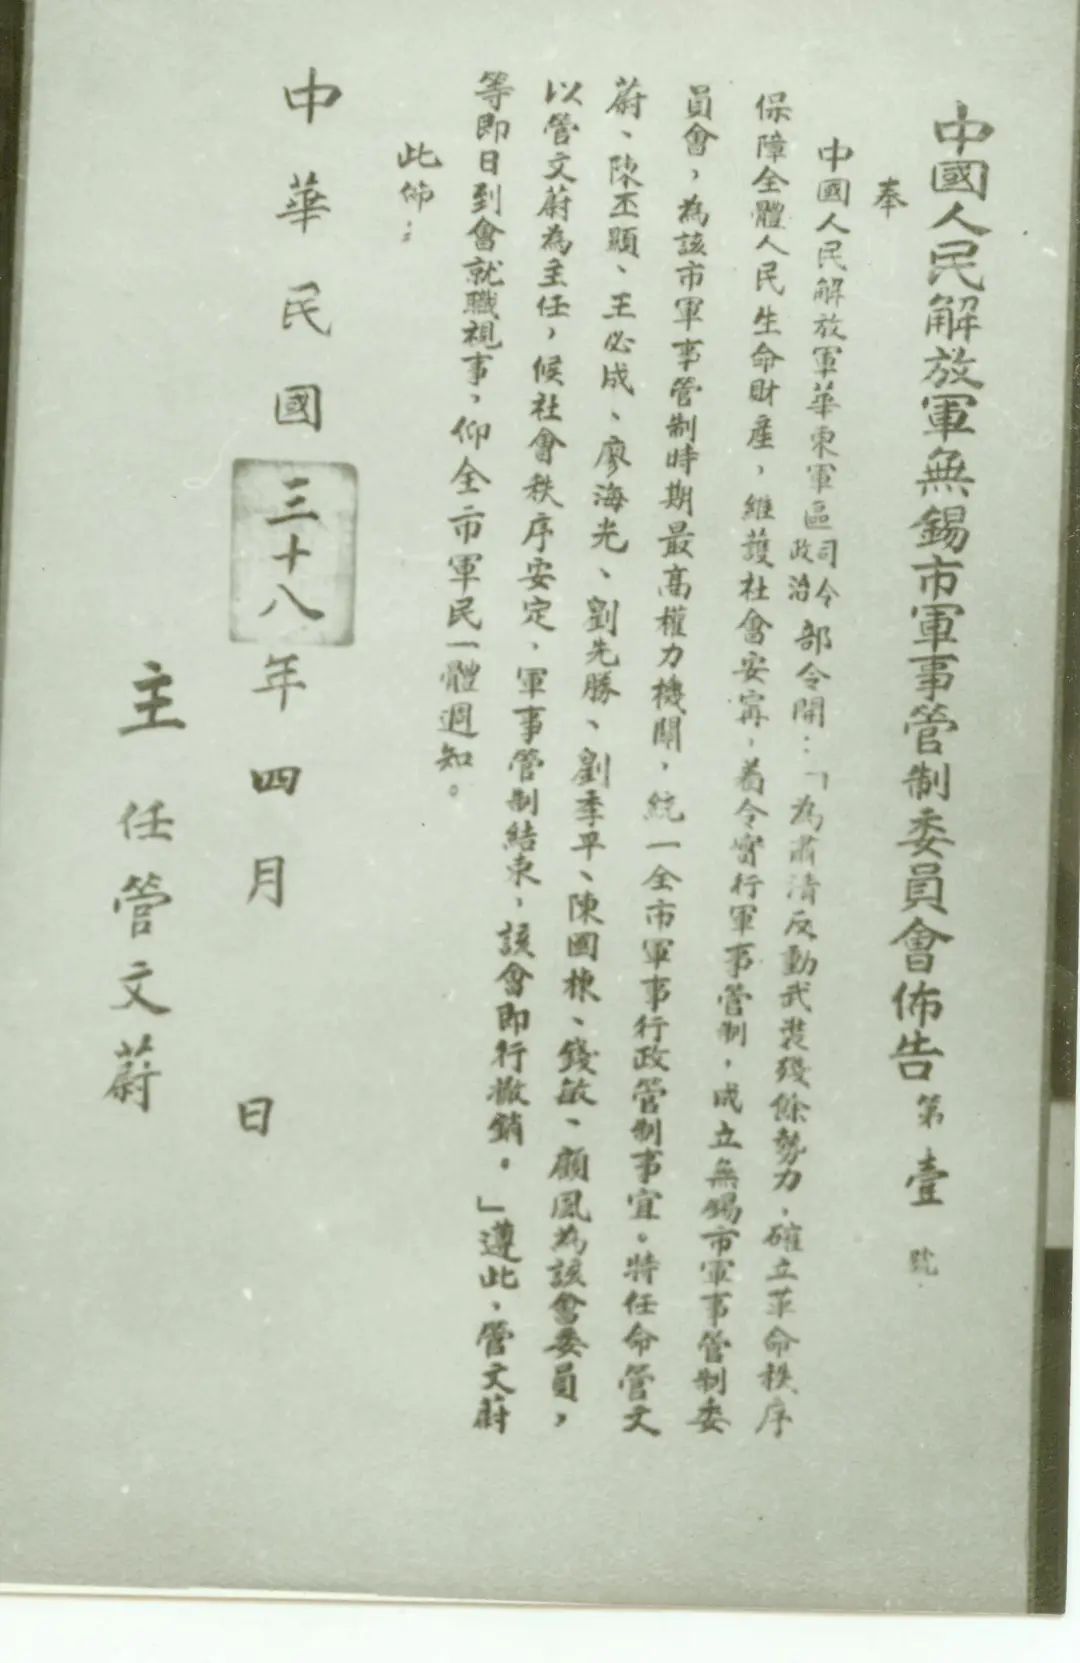 中國人民解放軍無錫市軍事管制委員會佈告 第壹號
奉
中國人民解放軍華東軍區司令政治部令開：「為肅清反動武裝殘餘勢力，確立革命秩序
保障全體人民生命財產，維護社會安寧，着令實行軍事管制，成立無錫市軍事管制委
員會，為該市軍事管制時期最高權力機關，統一全市軍事行政管制事宜。特任命管文
蔚、陳丕顯、王必成、廖海光、劉先勝、劉季平、陳國棟、錢敏、顧風為該會委員，
以管文蔚為主任，候社會秩序安定，軍事管制結束，該會即行撤銷。」遵此，管文蔚
等即日到會就職視事，仰全市軍民一體週知。
此佈：
中華民國三十八年四月 日
主任管文蔚